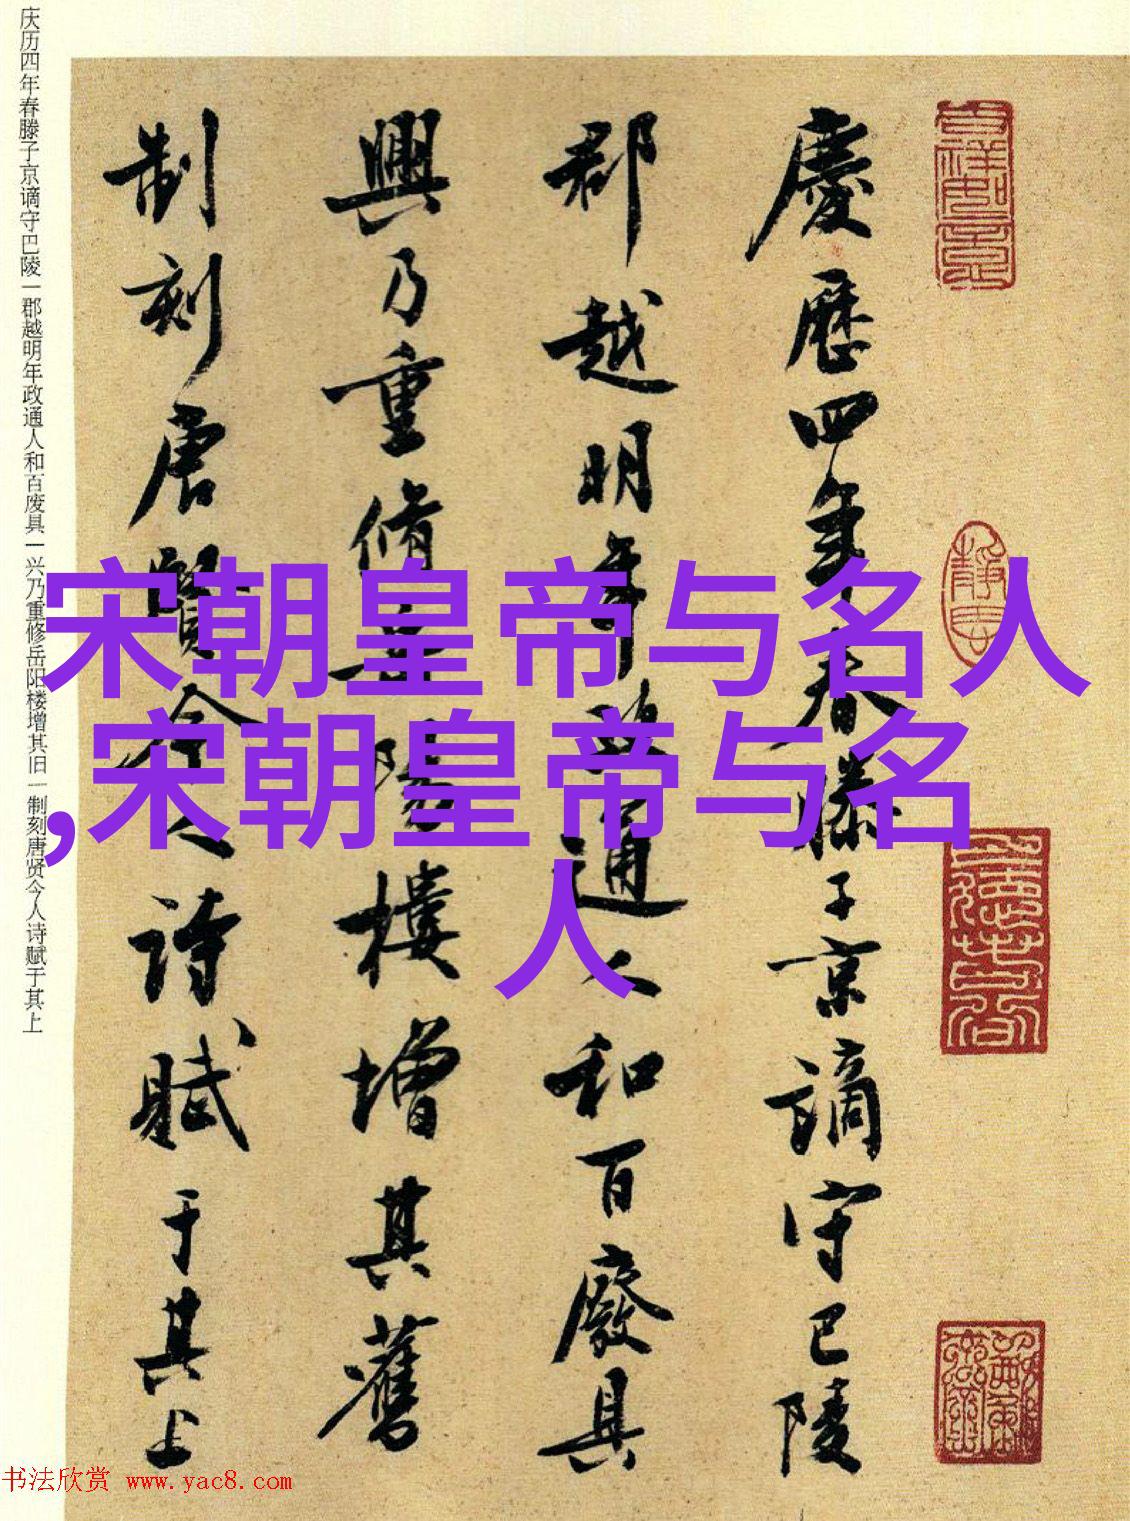 慶歷四年春滕子京謫守巴陵
郡越明年政通人和百廢具
興乃重修岳陽樓增其舊
制刻唐賢今人詩賦于其上
庆历四年春滕子京谪守巴陵一郡越明年政通人和百废具一兴乃重修岳阳楼增其旧一制刻唐贤今人诗赋于其上
宋朝皇帝与名人
,宋朝皇帝与名
人
书法欣赏 www.yac8.com